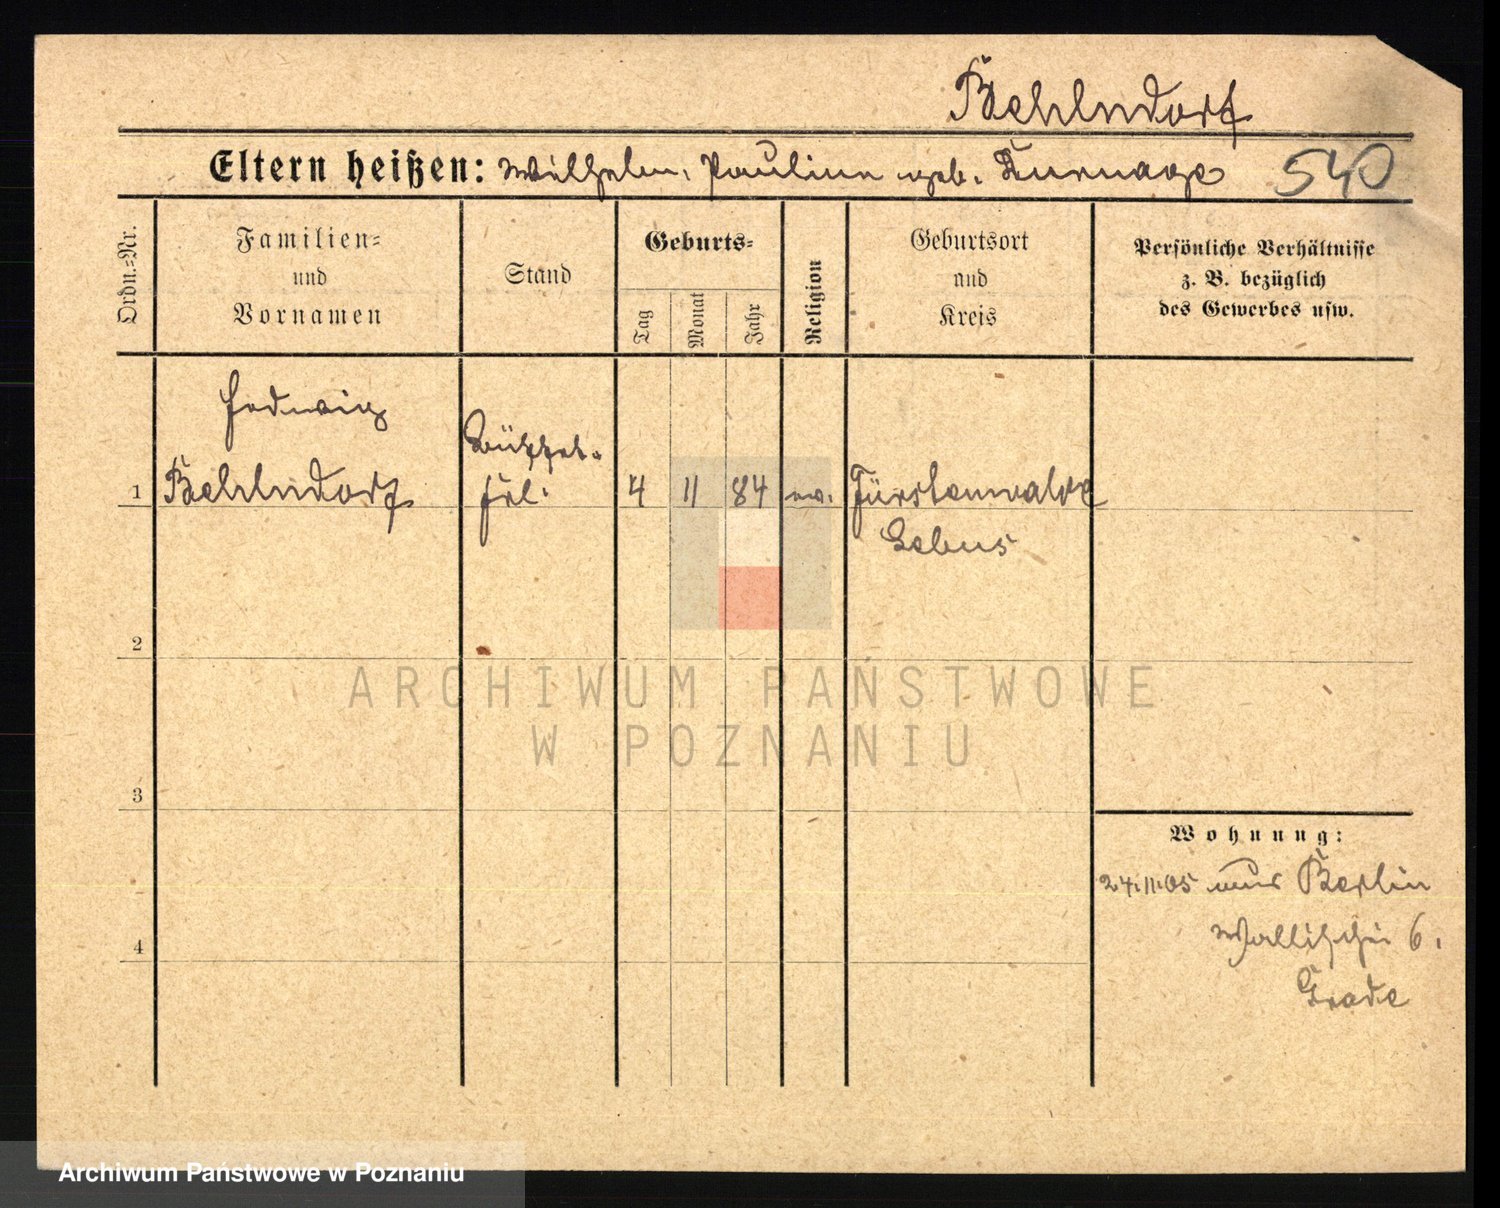 Behlndorf
Eltern heißen: Wilhelm, Pauline geb. 540
Ordn.=Nr.
Familien=
und
Vornamen
Stand
Geburts=
Tag
Monat
Jahr
Religion
Geburtsort
und
Kreis
Persönliche Verhältnisse
z. B. bezüglich
des Gewerbes usw.
Hedwig
Büffet-
1 Behlndorf frl. 4 11 84 ev. Fürstenwalde
Lebus
2
3
4
Wohnung:
24.11.05 aus Berlin
Wallischei 6.
Grade
ARCHIWUM PAŃSTWOWE
W POZNANIU
Archiwum Państwowe w Poznaniu